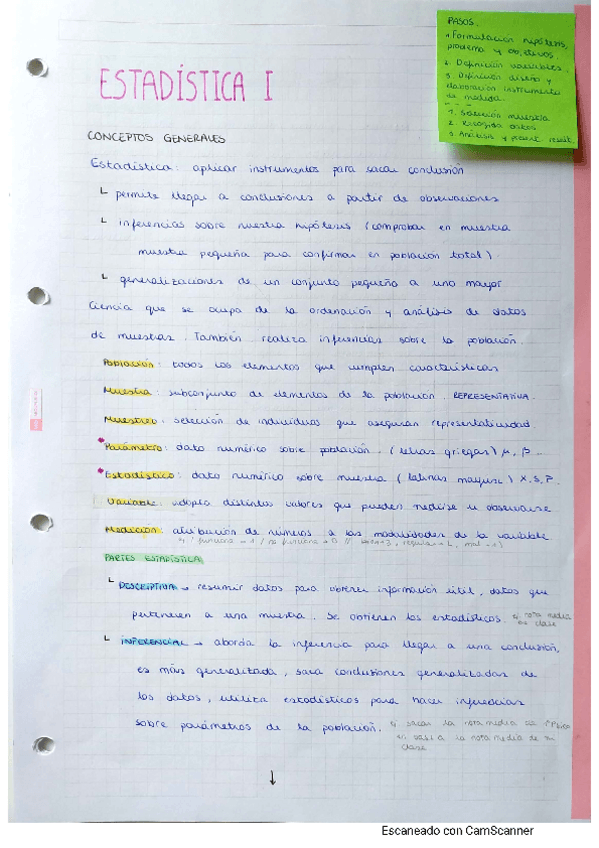 PASOS.
1. Formulación hipótesis,
problema y objetivos.
2. Definición variables.
3. Definición diseño y
elaboración instrumento
de medida.
1. Selección muestra
2. Recogida datos
3. Análisis y present. result.
ESTADÍSTICA I
CONCEPTOS GENERALES
Estadística: aplicar instrumentos para sacar conclusión
permite llegar a conclusiones a partir de observaciones
inferencias sobre nuestra hipótesis (comprobar en muestra
muestra pequeña para confirmar en población total)
generalizaciones de un conjunto pequeño a uno mayor
Ciencia que se ocupa de la ordenación y análisis de datos
de muestras. También realiza inferencias sobre la población.
Población: todos los elementos que cumplen características
Muestra: subconjunto de elementos de la población. REPRESENTATIVA.
Muestreo: selección de individuos que aseguran representatividad
Parámetro: dato numérico sobre población. (letras griegas) μ, β
Estadístico: dato numérico sobre muestra (latinas mayusc.) X, S, P.
Variable: adopta distintos valores que pueden medirse u observarse
Medición: atribución de números a las modalidades de la variable
funciona → 1 / no funciona → 0
PARTES ESTADÍSTICA
DESCRIPTIVA → resumir datos para obtener información útil, datos que
pertenecen a una muestra. Se obtienen los estadísticos. ej nota media
de clase
INFERENCIAL → aborda la inferencia para llegar a una conclusión,
es más generalizada, saca conclusiones generalizadas de
los datos, utiliza estadísticos para hacer inferencias
sobre parámetros de la población. ej sacar la nota media de 1º Psico
en base a la nota media de mi
clase
↓
Escaneado con CamScanner